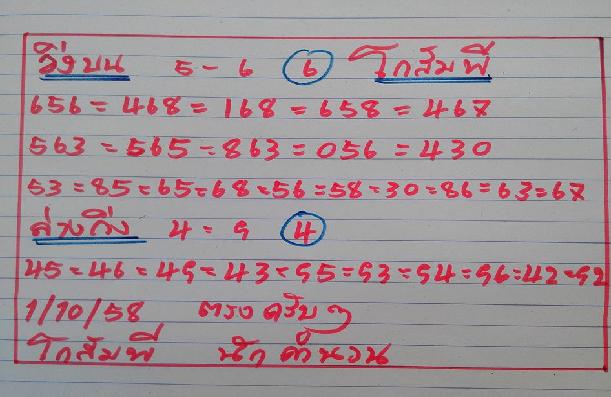 วิ่งบน 5-6 6 โกสัมพี
656=468=168=658=467
563=565=863=056=430
53=85=65=68=56=58=30=86=63=67
ล่างวิ่ง 4=9 4
45=46=49=43=95=93=94=96=42=92
1/10/58 ตรง ครับ ๆ
โกสัมพี นัก คำนวน